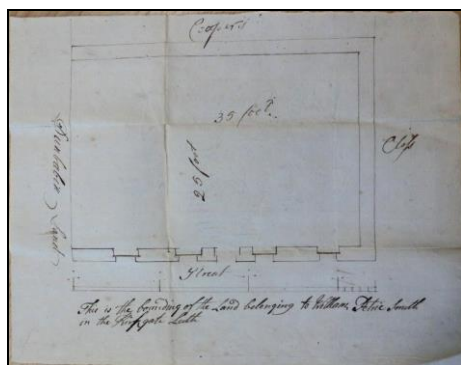 Coopers
35 foot.
25 feet
Land
Closs
Street
This is the bounding of the Land belonging to William Petrie Smith
in the Kirkgate Leith